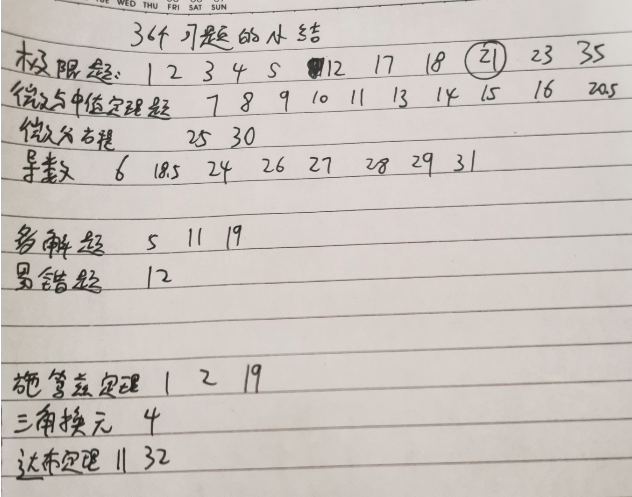 WED THU FRI SAT SUN
36个习题的小结
极限题: 1 2 3 4 5 12 17 18 21 23 35
微分与中值定理题 7 8 9 10 11 13 14 15 16 20.5
微分方程 25 30
导数 6 18.5 24 26 27 28 29 31
多解题 5 11 19
易错题 12
施笃兹定理 1 2 19
三角换元 4
达布定理 11 32